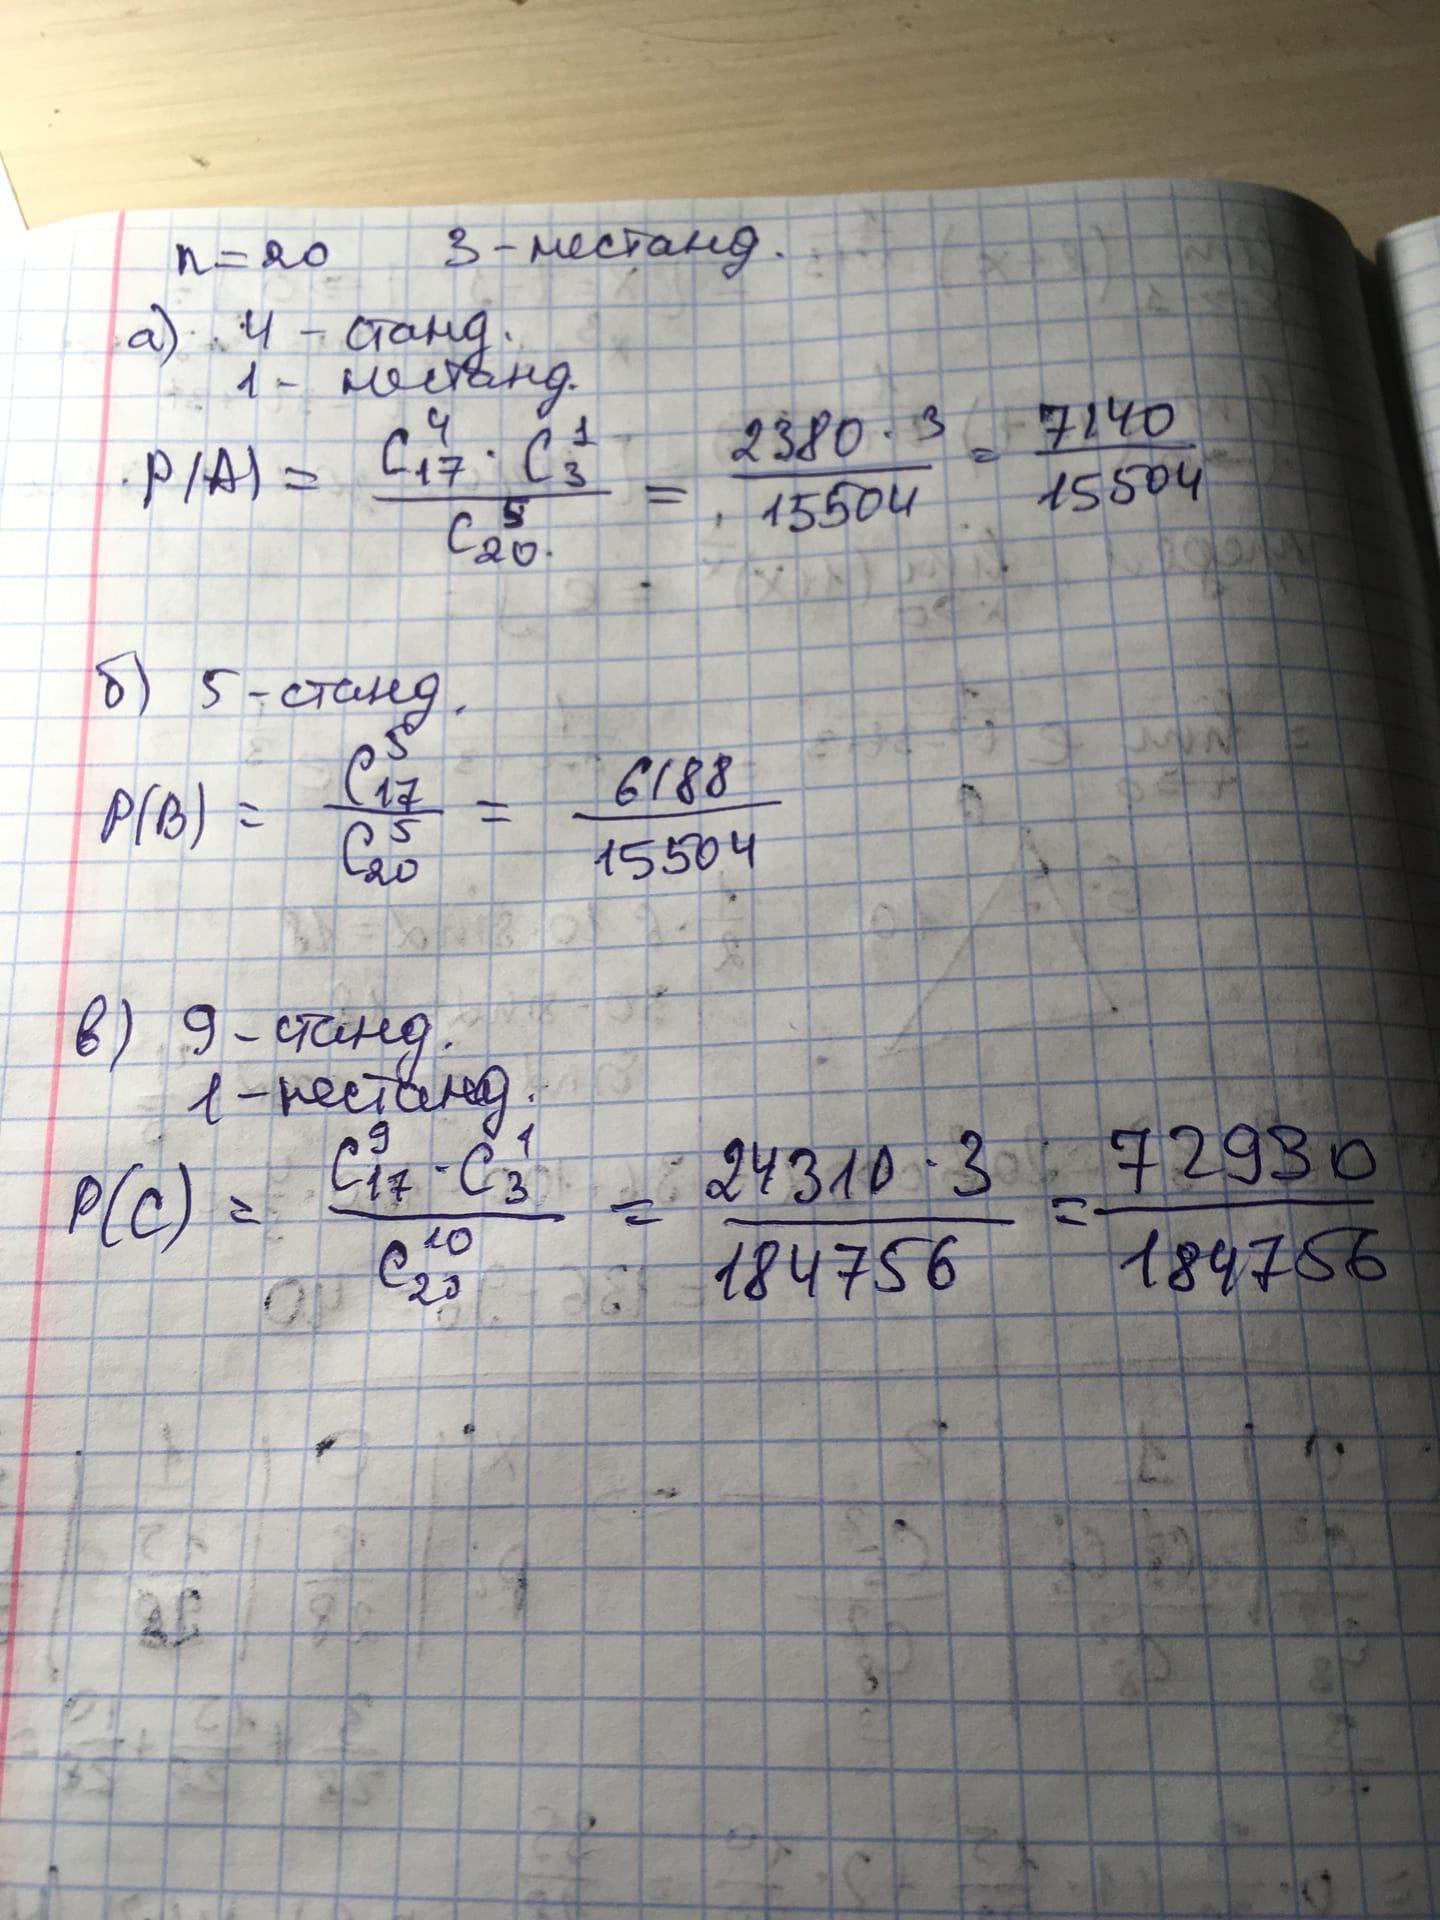 n=20 3-нестанд.
а) 4 - станд.
1 - нестанд.
P(A) = (C₁₇⁴ · C₃¹)/C₂₀⁵ = (2380 · 3)/15504 = 7140/15504
б) 5-станд.
P(B) = C₁₇⁵/C₂₀⁵ = 6188/15504
в) 9-станд.
1-нестанд.
P(C) = (C₁₇⁹ · C₃¹)/C₂₀¹⁰ = (24310 · 3)/184756 = 72930/184756